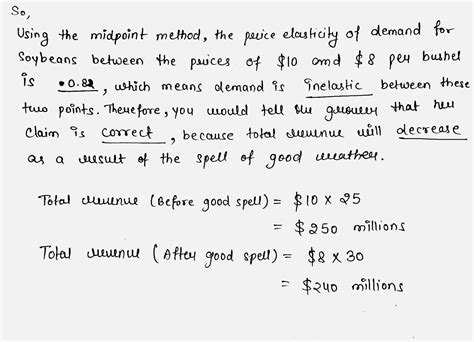 So,
Using the midpoint method, the price elasticity of demand for
Soybeans between the prices of $10 and $8 per bushel
is •0.82, which means demand is inelastic between these
two points. Therefore, you would tell the grower that her
claim is correct, because total revenue will decrease
as a result of the spell of good weather.
Total revenue (Before good spell) = $10 × 25
= $250 millions
Total revenue (After good spell) = $8 × 30
= $240 millions